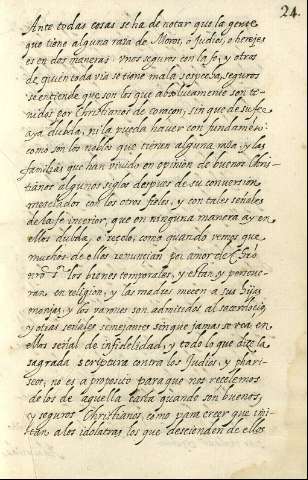 24.
Ante todas cosas se ha de notar que la gente
que tiene alguna rasa de Moros, o Judios, o herejes
es en dos maneras: Vnos seguros en la fe, y otros
de quien todavia se tiene mala sospecha, seguros
se entiende que son los que absolutamente son te-
nidos por Christianos de coraçon, sin que de su fe
aya dubda, ni la pueda hauer con fundamento:
como son los nobles que tienen alguna rasa, y las
familias que han viuido en opinion de buenos Chri-
stianos algunos siglos despues de su conuersion
mesclados con los otros fieles, y con tales señales
de la fe interior, que en ninguna manera ay en
ellos dubda, o recelo, como quando vemos que
muchos de ellos renuncian por amor de
los bienes temporales, y estan, y perseue-
ran en religion, y las madres meten a sus hijas
monjas, y los varones son admitidos al sacerdocio,
y otras señales semejantes sin que jamas se vea en
ellos señal de infidelidad, y todo lo que dize la
sagrada scriptura contra los Judios, y phari-
seos, no es a proposito para que nos recelemos
de los de aquella casta quando son buenos,
y seguros Christianos, como para creer que imi-
tan a los idolatras los que descienden de ellos